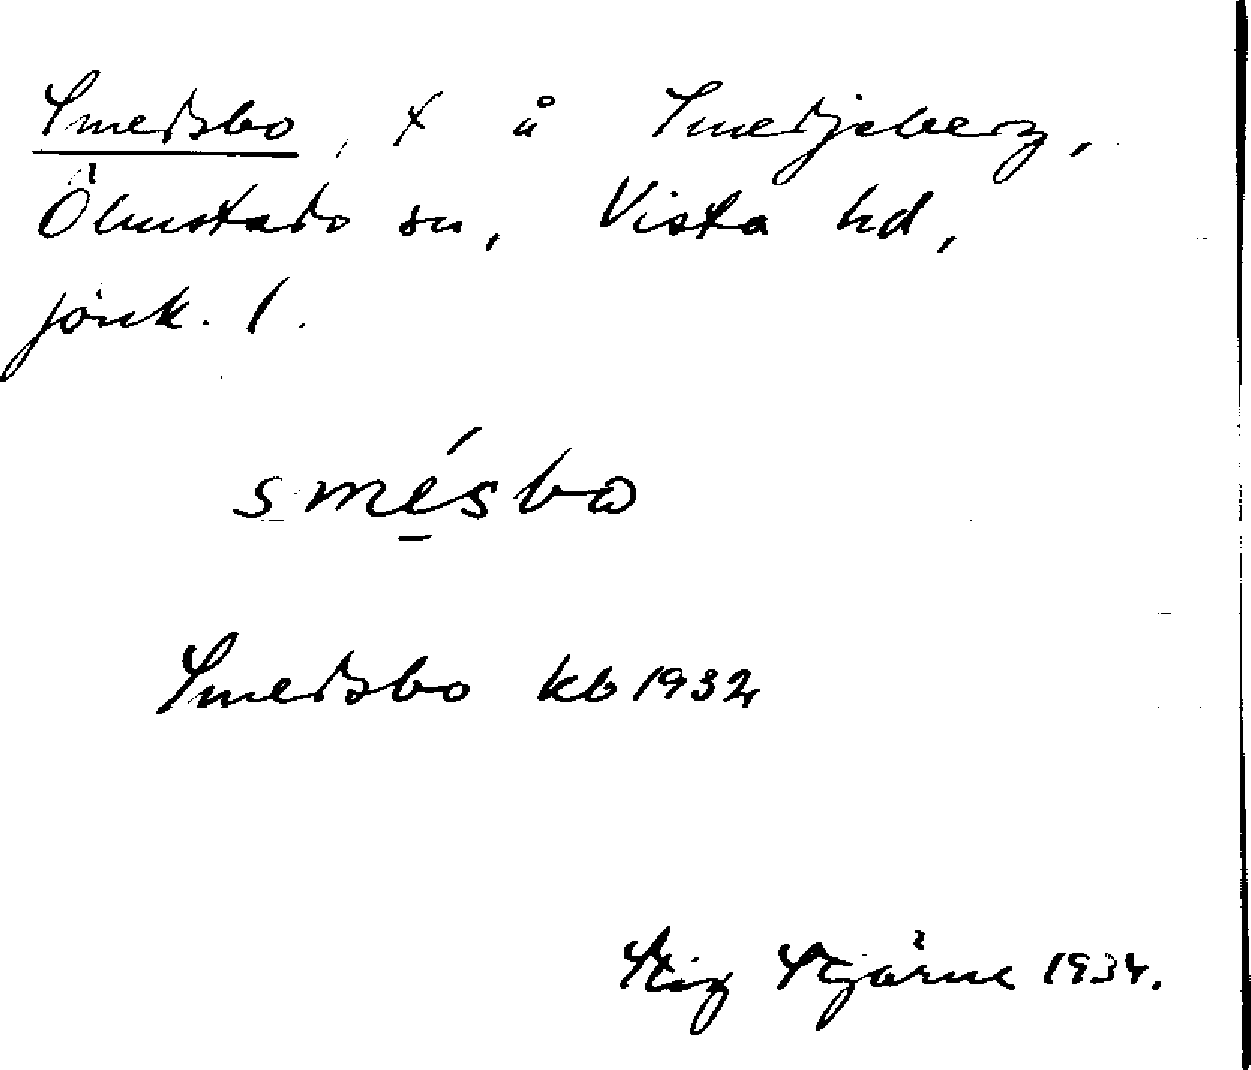 Smedsbo, x å Smedjeberg,
Ölmstads sn, Vista hd,
jönk. l.
smésbo
Smedsbo kb 1932
Stig Stjärne 1934.